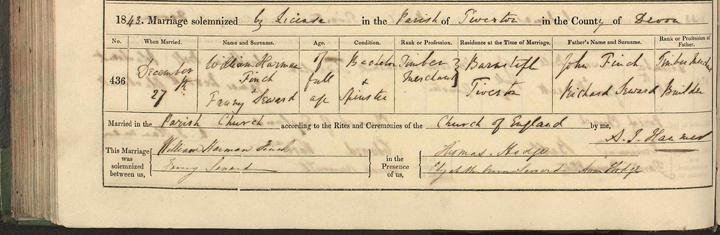 1843. Marriage solemnized by License in the Parish of Tiverton in the County of Devon
No. When Married. Name and Surname. Age. Condition. Rank or Profession. Residence at the Time of Marriage. Father's Name and Surname. Rank or Profession of Father.
436 December 27th William Harman Finch & Fanny Seward of full age Bachelor & Spinster Timber Merchant Tiverton John Finch Richard Seward Timber Merchant Builder
Married in the Parish Church according to the Rites and Ceremonies of the Church of England by me,
This Marriage was solemnized between us, William Harman Finch Fanny Seward in the Presence of us, Thomas Hodge Seward Ann Hodge